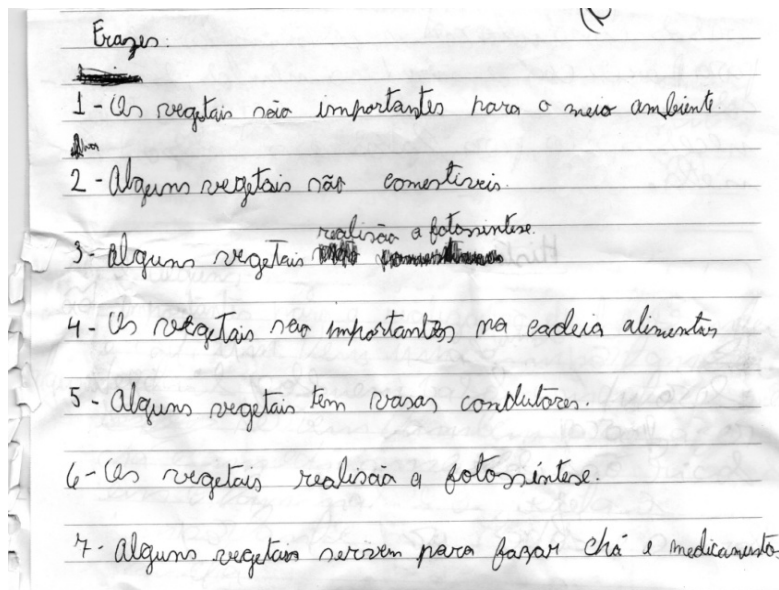 Erazes:
1 - Os vegetais são importantes para o meio ambiente.
2 - Alguns vegetais são comestiveis.
realisão a fotossintese.
3 - Alguns vegetais
4 - Os vegetais são importantes na cadeia alimentar
5 - Alguns vegetais tem vasas condutores.
6 - Os vegetais realisão a fotossíntese.
7 - Alguns vegetais servem para fazar chá e medicamentos